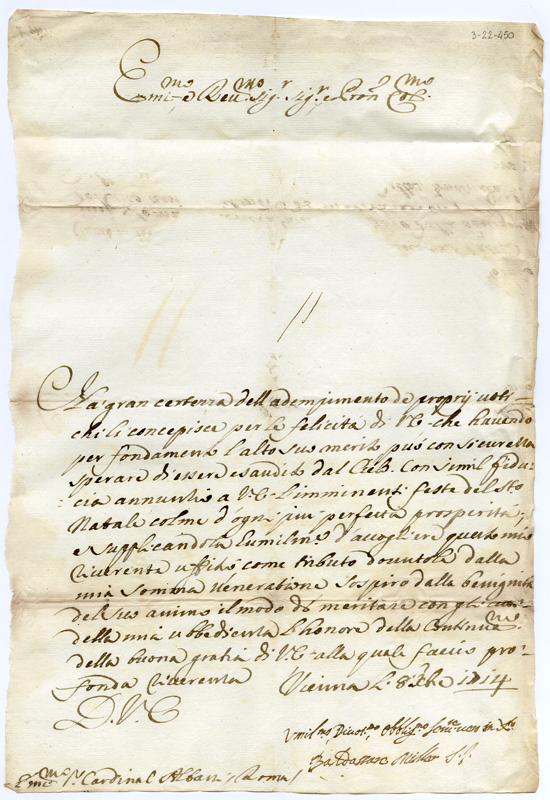 3-22-450
Em.mo e Reu.mo Sig.r Sig.r e Pron. Col.mo
Ha gran certezza dell'adempimento de proprij uoti
chi li concepisce per la felicità di V.E. che hauendo
per fondamento l'alto suo merito può con sicurezza
sperare di essere esaudito dal Cielo. Con simil fidu-
cia annuntio a V.E. l'imminenti feste del S.to
Natale colme d'ogni piu perfetta prosperità;
e supplicandola humilm.e d'accogliere questo mio
riuerente uffitio come tributo douutole dalla
mia somma ueneratione sospiro dalla benignità
del suo animo il modo di meritare con gli
della mia ubbedienza l'honore della
della buona gratia di V.E. alla quale faccio pro-
fonda riuerenza Vienna L. 8bre 1714
D. V. E.
Vmil.mo Diuot.mo Obblig.mo
Baldassare Miller S.J.
Em.mo S.r Cardinal Albani / Roma /